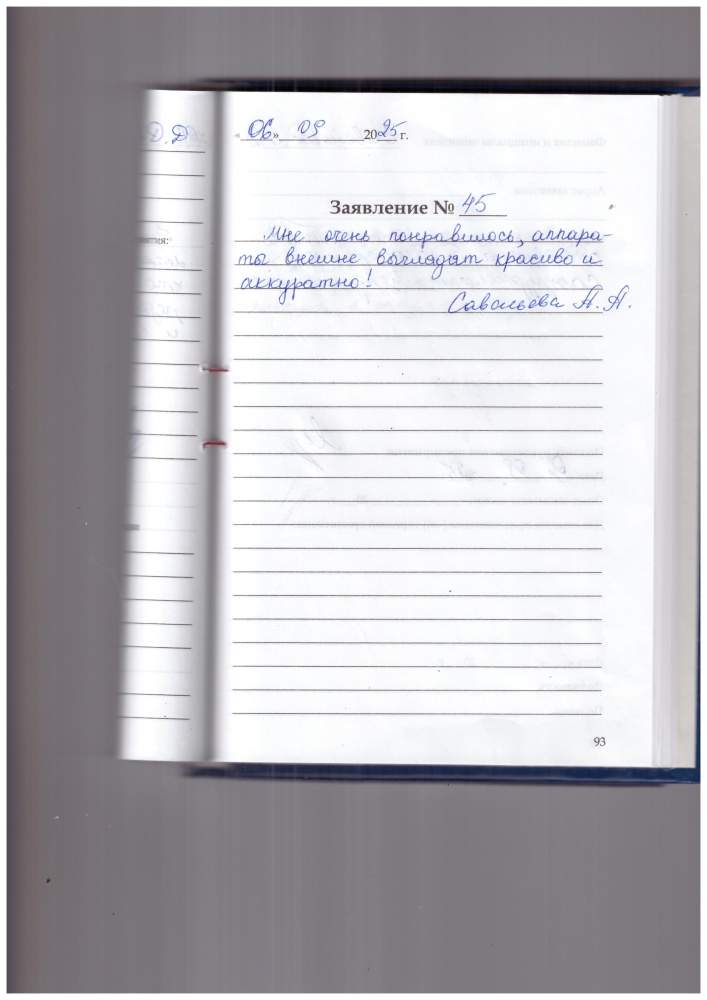 Д.Д
ятия:
«06» 09 2025 г.
Заявление № 45
Мне очень понравилось, аппара-
ты внешне выглядят красиво и
аккуратно!
Савельева А.А.
93